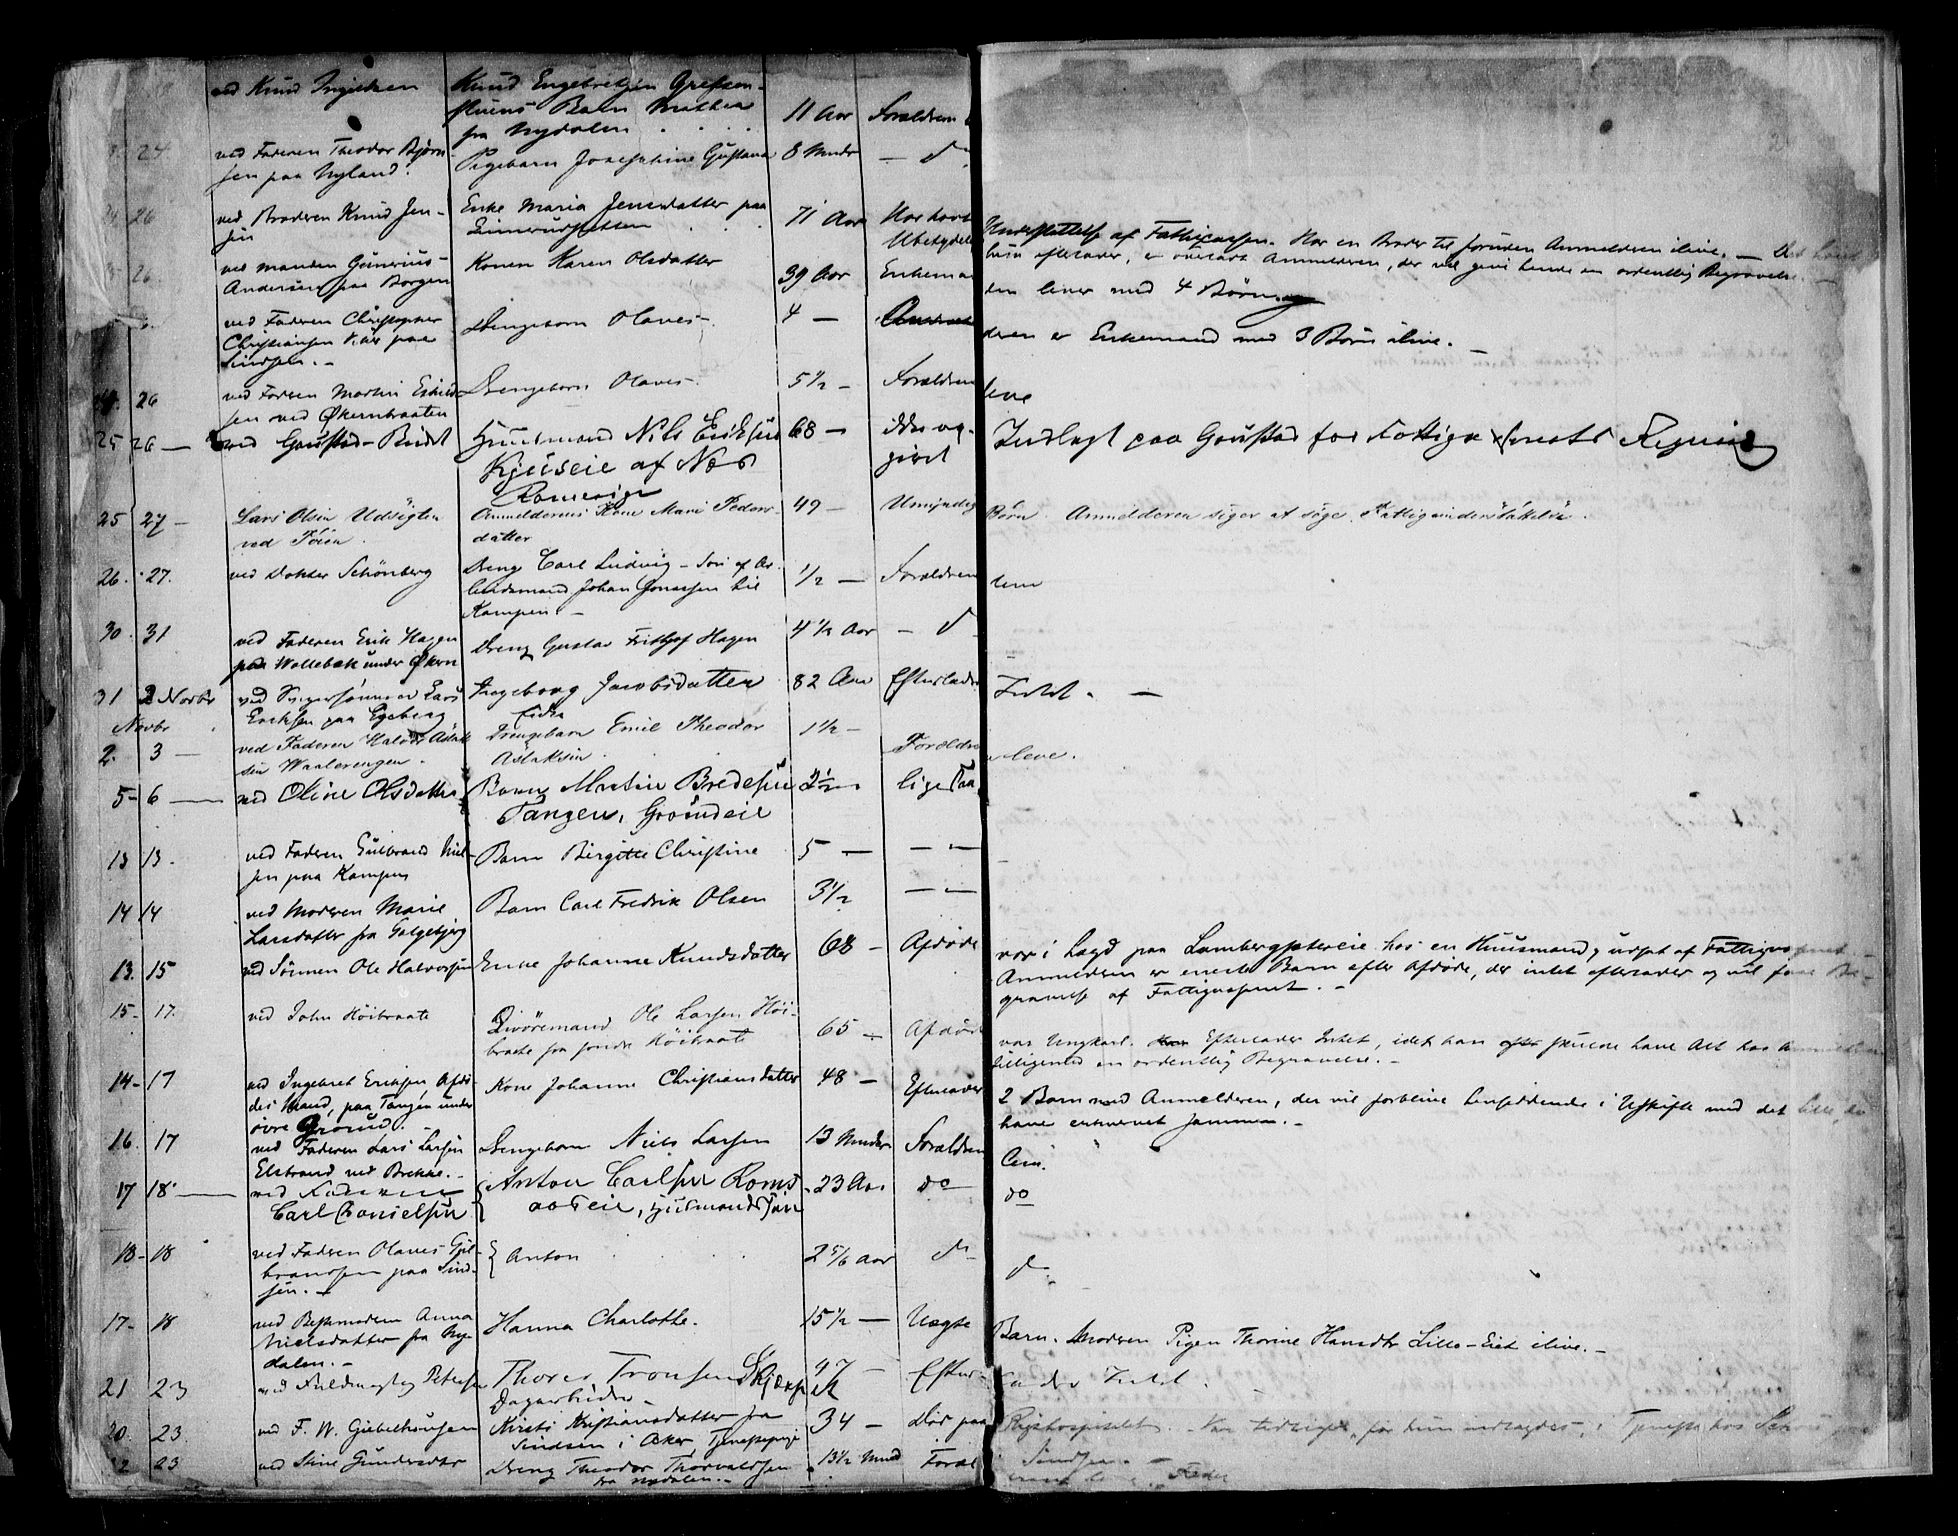 ved Knud Ingebretsen Knud Engebretsen Grefsen-
stuens Barn Mathea
fra Nydalen 11 Aar Forældrene
24 ved Faderen Theodor Bjørn-
sen paa Nyland. Pigebarn Josephine Gustava 8 Mndr — d
26 ved Broderen Knud Jen-
sen Enke Maria Jensdatter paa 71 Aar Har havt Understøttelse af Fattigcassen. Har en Broder til foruden Anmelderen ilive. —
Ubetydeligt hun efterlader, er overladt Anmelderen, der vil give hende en ordentlig Begravelse. —
26. ved Manden Gunerius
Andersen paa Borgen Konen Karen Olsdatter 39 Aar Enkeman den lever med 4 Børn
ved Faderen Christopher
Christiansen paa
Sindsen. — Drengebarn Olaves. 4 — deren er Enkemand med 3 Børn ilive. —
26 ved Faderen Martin Eskild-
sen ved Økernbraaten Drengebarn Olaves. 5½ — Forældrene leve
25 26 — ved Gaustad-Budet Huusmand Nils Eriksen 68 — ikke op- Indlagt paa Gaustad for Fattigv. Regning
Kjuseie af Næs givet
Romerige
25 27 — Lars Olsen Udsigten
ved Tøien. Anmelderens Kone Mari Peders-
datter 49 — Umyndige Børn. Anmelderen siger at søge Fattigunderstøttelse.
26. 27. ved Dokter Schönberg Dreng Carl Ludvig – Søn af Ar-
beidsmand Johan Jonassen til
Kampen. — ½ — Forældrene leve
30. 31 ved Faderen Erik Hagen
paa Wollebæk under Økern Dreng Gustav Frithjof Hagen 4½ Aar — d
31 2 Novbr ved Svigersønnen Lars
Eriksen paa Egeberg Ingeborg Jacobsdatter 82 Aar Efterlader Intet. —
Novbr
2. 3 — ved Faderen Halvor Aslak-
sen Waalerengen. Drengebarn Emil Theodor
Aslaksen. 1½ — Forældre leve.
5 – 6 — ved Oline Olsdatter Barn Martin Bredesen 2½ ligesaa
Tangen, Grorudeie
13 13. ved Faderen Gulbrand Niel-
sen paa Kampen Barn Birgitte Christine 5 — — " —
14 14 ved Moderen Marie
Larsdatter fra Galgebjerg Barn Carl Fredrik Olsen 3½ — " —
13. 15 ved Sønnen Ole Halvorsen Enke Johanne Knudsdatter 68 — Afdøde var i Lægd paa Lambergsetereie hos en Huusmand, udsat af Fattigvæsenet
Anmelderen er eneste Barn efter Afdøde, der intet efterlader og vil faae Be-
gravelse af Fattigvæsenet. —
15 – 17. ved John Høibraate Livøremand Ole Larsen Høi-
braate fra søndre Høibraate 65 — Afdøde var Ungkarl. Efterlader Intet, idet han skulde have Alt hos Anmelderen
tilligemed en ordentlig Begravelse. —
14 – 17 ved Ingebret Eriksen Afdø-
des Mand, paa Tangen under
øvre Grorud. Kone Johanne Christiansdatter 48 — Efterlader 2 Børn med Anmelderen, der vil forblive hensiddende i Uskifte med det Lille de
have erhvervet sammen. —
16. 17 ved Faderen Lars Larsen
Elstrand ved Brekke. — Drengebarn Niels Larsen 13 Mndr Forældrene leve.
17 18 — ved Faderen
Carl Danielsen Anton Carlsen Roms-
aaseie, Huusmandssøn 23 Aar do do
18 – 18 ved Faderen Olaves Gul-
brandsen paa Sind-
sen. — Anton 2 5/6 Aar d d
17 – 18 ved Bestemoderen Anna
Nielsdatter fra Ny-
dalen. — Hanna Charlotte. 15½ — Uægte Barn. Moderen Pigen Thorine Hansdtr Lille-Eiet ilive. —
21 23 ved Fuldmægtig Petersen Thores Tronsen Skjæsæt 47 — Efter- lader Intet.
Dagarbeider
20. 23 ved F. W. Giebelhausen Kirsti Kristiansdatter fra
Sindsen i Aker, Tjenestepige 34 — død paa Rigshospitalet. Var tidligere, før hun indlagdes, i Tjeneste hos
Sindsen. —
22 23 ved Stine Gundersdtr Dreng Theodor Thorvaldsen
fra Nydalen. — 13½ Mnd Foræl